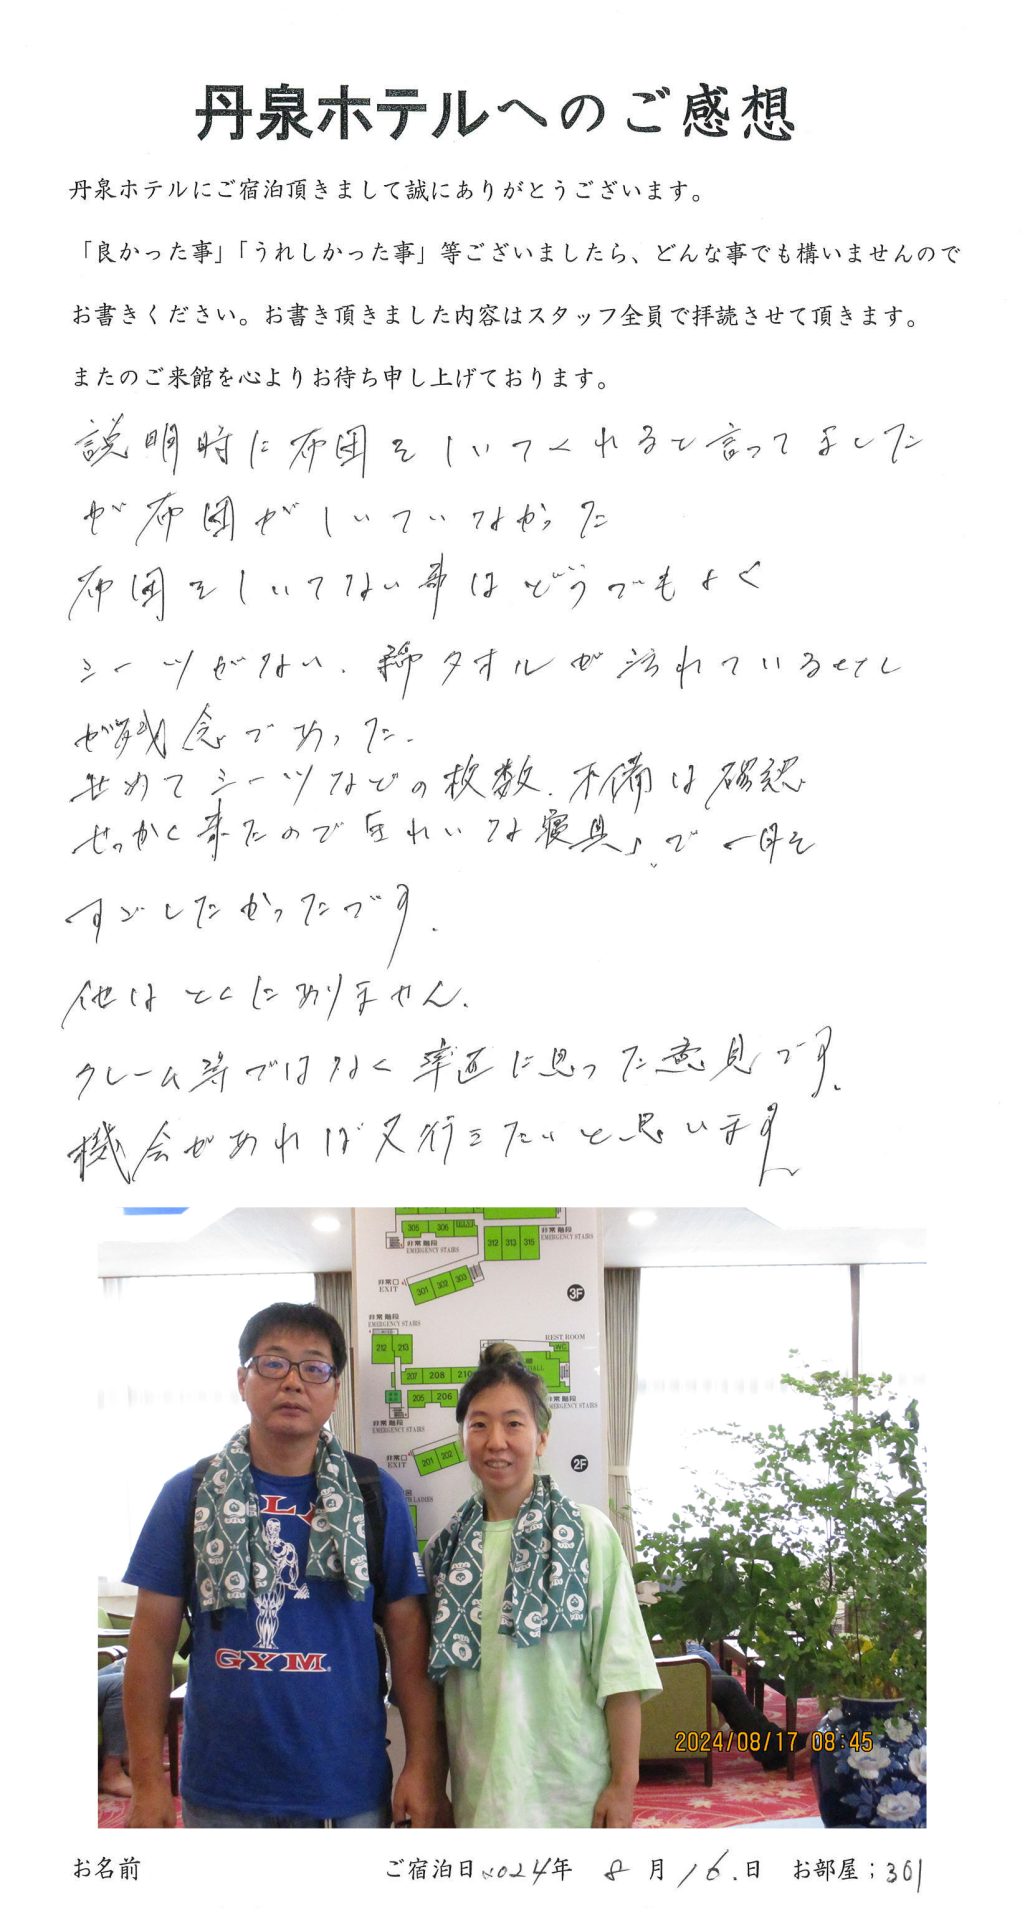 丹泉ホテルへのご感想
丹泉ホテルにご宿泊頂きまして誠にありがとうございます。
「良かった事」「うれしかった事」等ございましたら、どんな事でも構いませんので
お書きください。お書き頂きました内容はスタッフ全員で拝読させて頂きます。
またのご来館を心よりお待ち申し上げております。
説明時に布団をしいてくれると言ってました
が布団がしいていなかった
布団をしいてない事はどうでもよく
シーツがない、タオルが汚れている
が残念であった。
せめてシーツなどの枚数、不備は確認
せっかく来たのできれいな寝具で一日を
すごしたかったです。
他はとくにありません。
クレーム等ではなく率直に思った意見です。
機会があれば又行きたいと思います
305 306
非常階段
EMERGENCY STAIRS
312 313 315
非常階段
EMERGENCY STAIRS
非常口
EXIT
301 302 303
3F
非常階段
EMERGENCY STAIRS
212 213
REST ROOM
WC
207 208 210
205 206
非常階段
EMERGENCY STAIRS
非常階段
EMERGENCY STAIRS
非常口
EXIT
201 202
2F
LADIES
GYM
2024/08/17 08:45
お名前 ご宿泊日2024年 8月16.日 お部屋；301